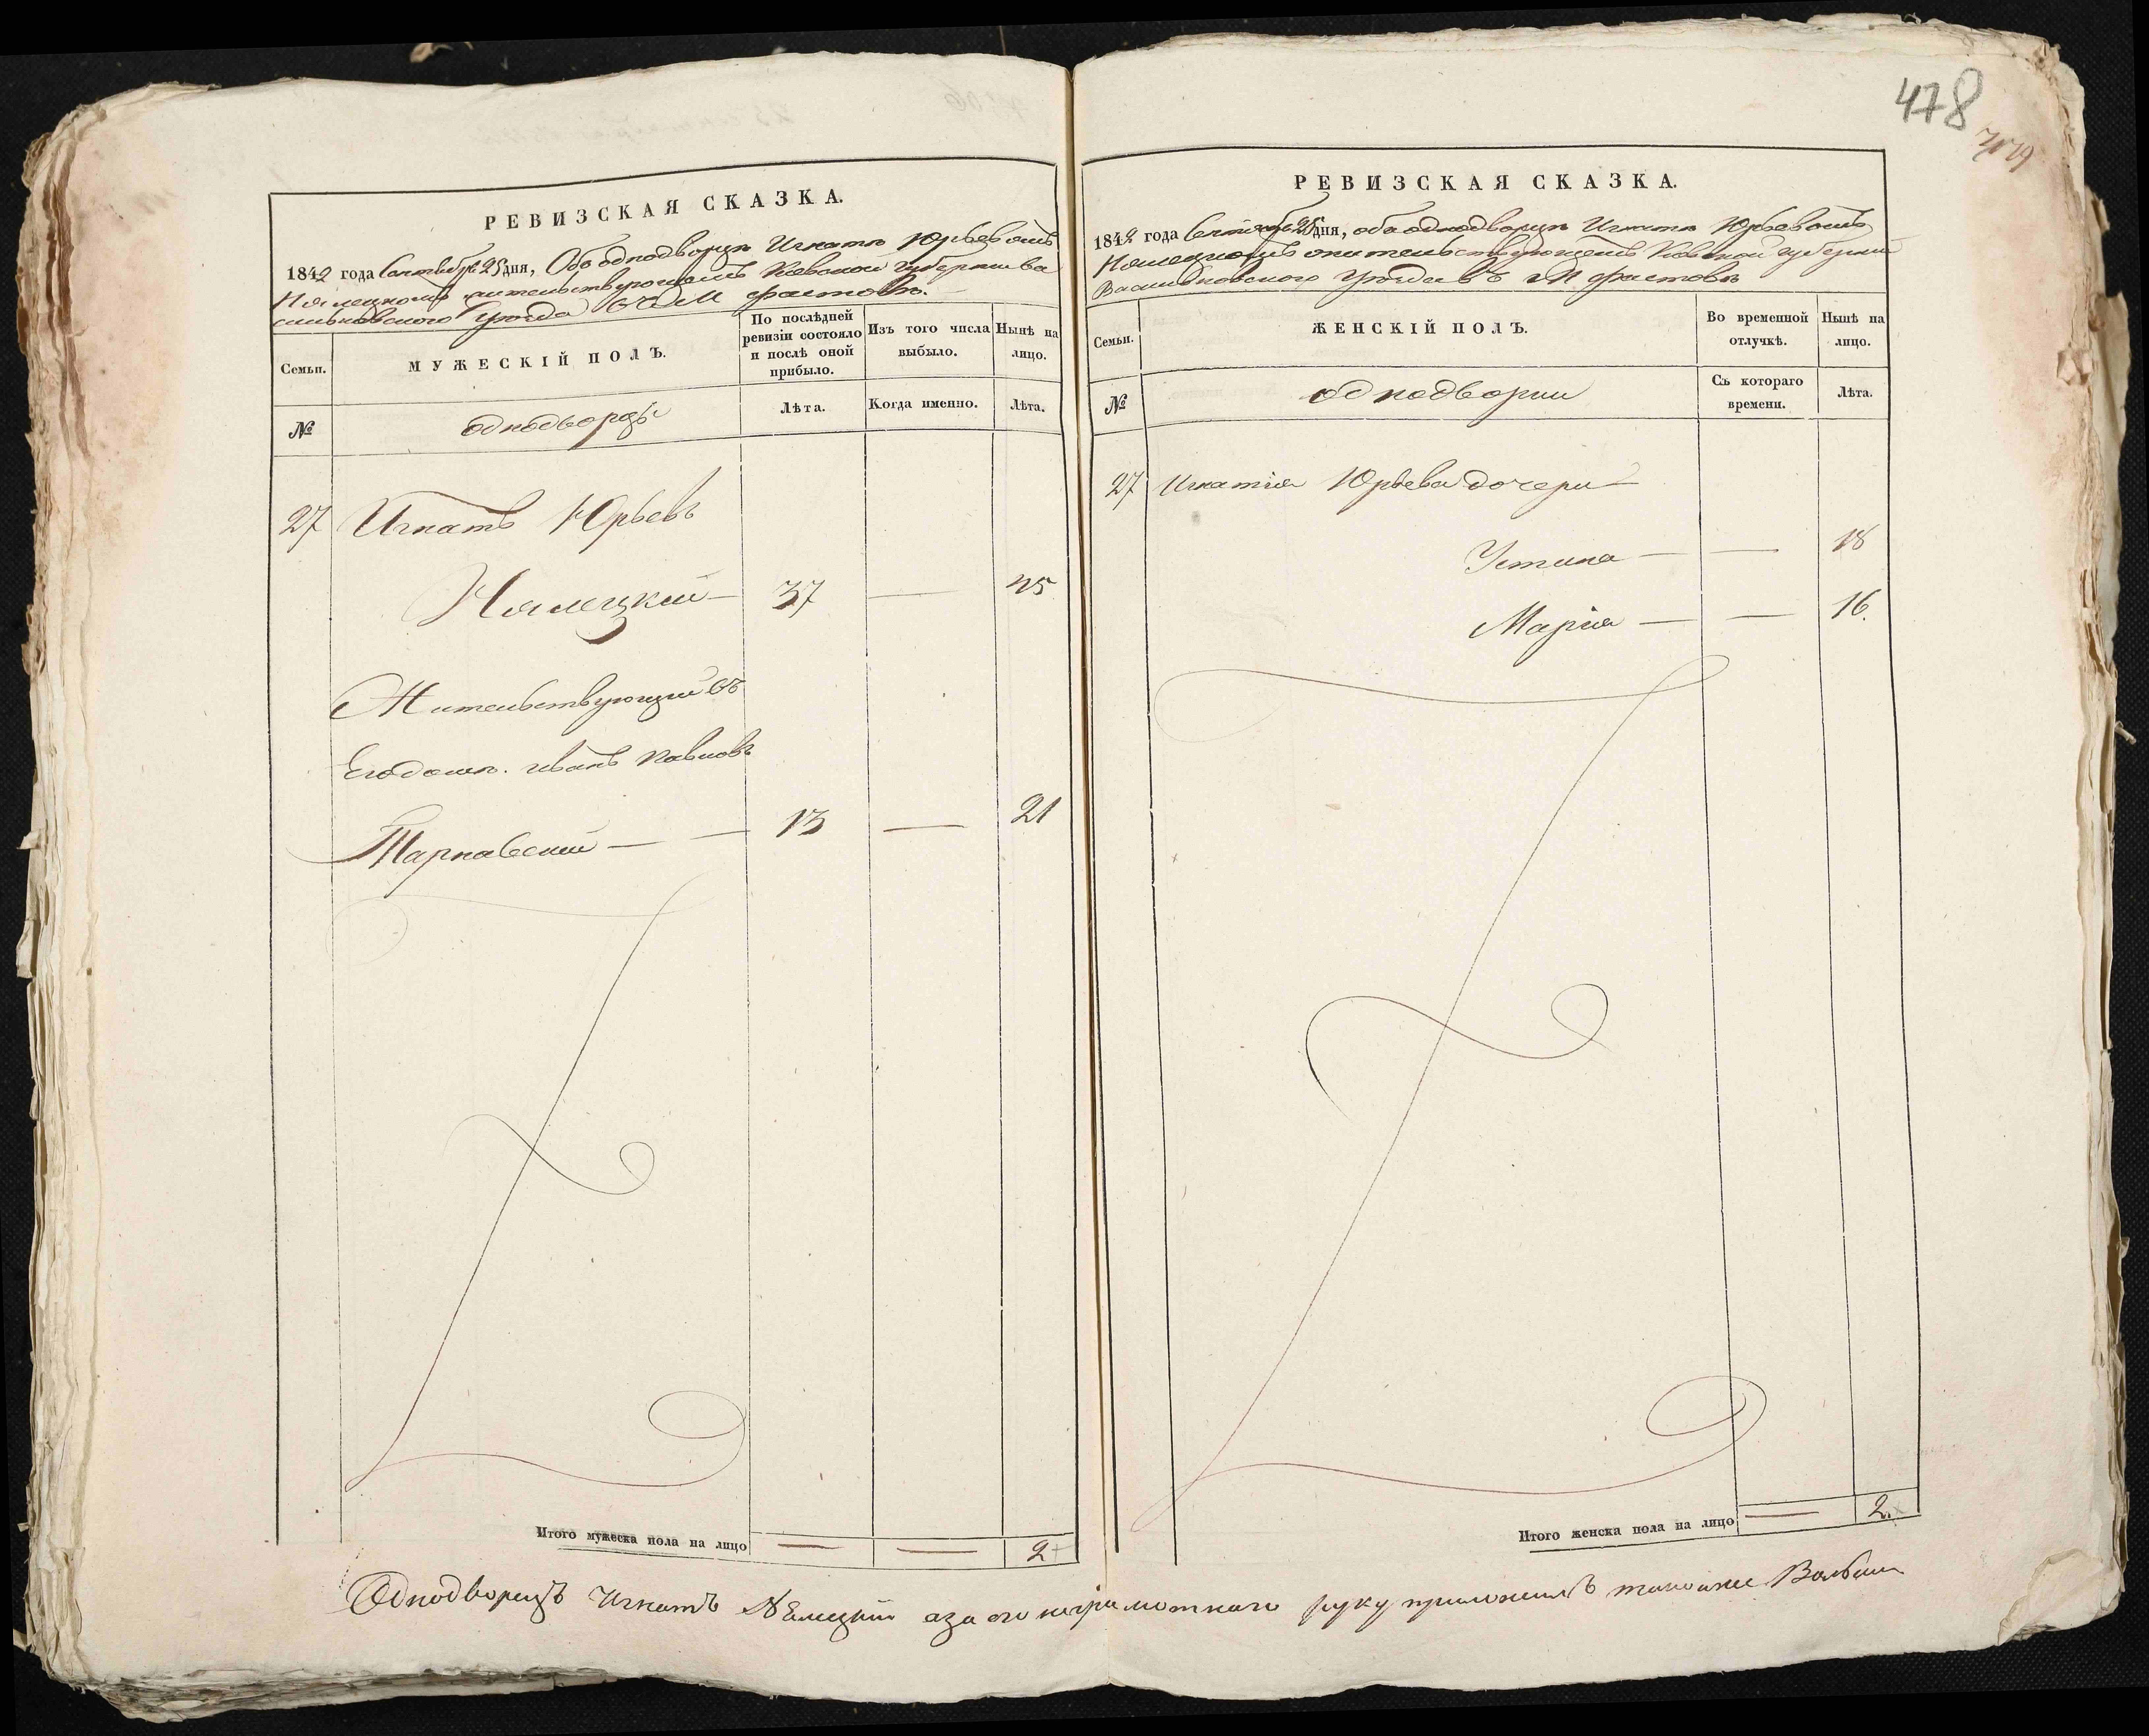 478
РЕВИЗСКАЯ СКАЗКА.
1842 года Сентября 25 дня, Объ однодворцѣ Игнатѣ Юрьевомъ
Нямецкомъ жительствующемъ Кіевской губерніи Ва
сильковскаго уѣзда въ М Фастовѣ.
Семьи.
МУЖЕСКІЙ ПОЛЪ.
По послѣдней ревизіи состояло и послѣ оной прибыло.
Изъ того числа выбыло.
Нынѣ на лицо.
№
однодворцы
Лѣта.
Когда именно.
Лѣта.
27 Игнатъ Юрьевъ
Нямецкій — 37 — 45
Жительствующій въ
Его домѣ. Иванъ Павловъ
Тарнавскій — — 13 — 21
Итого мужеска пола на лицо — — 2
РЕВИЗСКАЯ СКАЗКА.
1842 года Сентября 25 дня, объ однодворцѣ Игнатѣ Юрьевомъ
Нямецкомъ жительствующемъ Кіевской губерніи
Васильковскаго уѣзда въ М Фастовѣ
Семьи.
ЖЕНСКІЙ ПОЛЪ.
Во временной отлучкѣ.
Нынѣ на лицо.
№
однодворки
Съ котораго времени.
Лѣта.
27 Игнатія Юрьева дочери
Устина — — 18
Марія — — 16.
Итого женска пола на лицо — 2.
Однодворецъ Игнатъ Нямецкій а за его неграмотнаго руку приложилъ